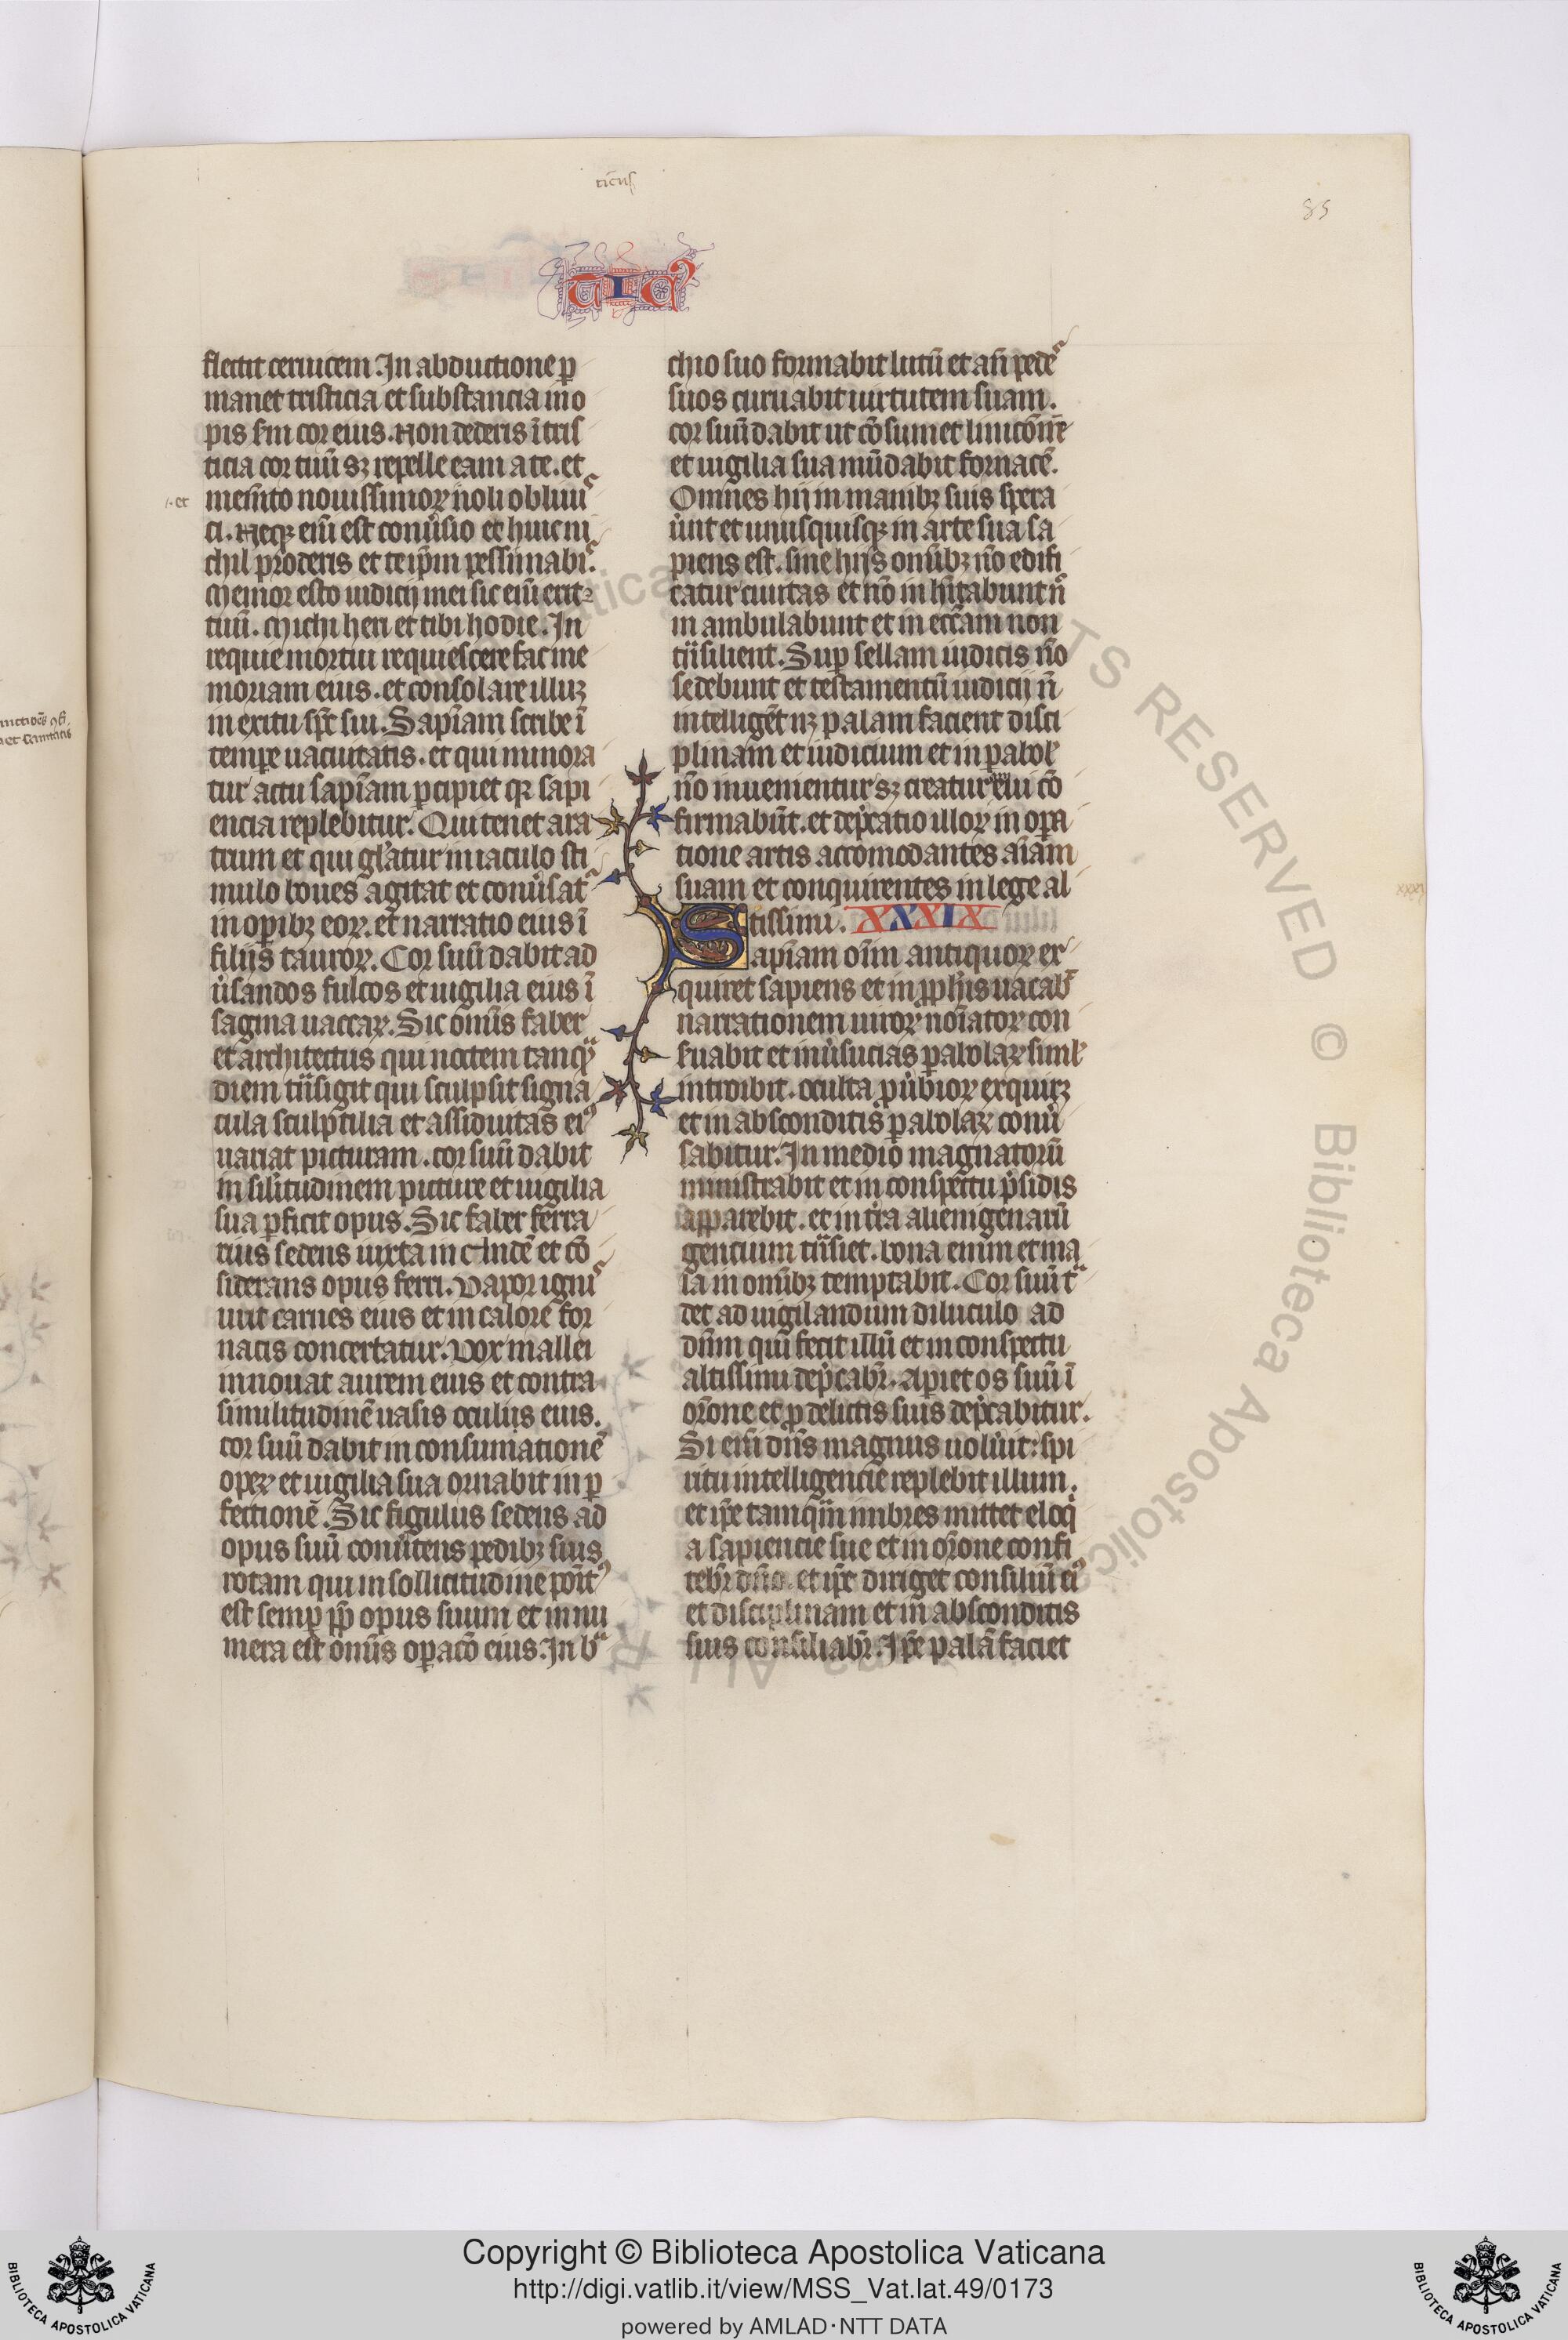 ticus
85
TIC'
flectit ceruicem. In abductione p̲
manet tristicia et substancia ino
pis s̄m cor eius. Non dederis ī tris
ticia cor tuū sꝫ repelle eam a te. et
mem̄to nouissimoꝝ noli obliui
·et
sci. Neqꝫ eni̅ est conu̾sio et huic ni
chil proderis et teip̄m pessimabis.
Memor esto iudicij mei sic eni̅ erit ⁊
tuū. Michi heri et tibi hodie. In
requie mortui requiescere fac me
moriam eius. et consolare illuꝫ
in exitu sp̄c sui. Sapiēam scribe ī
temp̲e uacuitatis. et qui minora
tur actu sapiēam p̲cipiet qꝛ sapi
encia replebitur. Qui tenet ara
trum et qui gl̄atur in iaculo sti
mulo boues agitat et conu̾sat᷑
in op̲ibꝫ eoꝝ. et narratio eius ī
filijs tauroꝝ. Cor suū dabit ad
u̾sandos sulcos et uigilia eius ī
sagina uaccaꝝ. Sic om̄is faber
et architectus qui noctem tanqᷓ
diem tn̄sigit qui sculpsit signa
cula sculptilia et assiduitas ei⁹
uariat picturam. cor suū dabit
in sil̄itudinem picture et uigilia
sua p̲ficit opus. Sic faber ferra
rius sedens iuxta incudē et cō
siderans opus ferri. Vapor ignis
urit carnes eius et in calore for
nacis concertatur. Vox mallei
innouat aurem eius et contra
similitudinē uasis oculus eius.
cor suū dabit in consumationē
opeꝝ et uigilia sua ornabit in p̲
fectionē. Sic figulus sedens ad
opus suū conu̾tens pedibꝫ suis
rotam qui in sollicitudine po̅it⁹
est semp̲ pp̄ opus suum et innu
mera est om̄is op̲acō eius. In bᷓ
chio suo formabit lutū et an̄ pedes
suos curuabit uirtutem suam.
cor suū dabit ut cōsumet linicōnē
et uigilia sua mūdabit fornacē.
Omnes hij in manibꝫ suis spera
u̾unt et unusquisqꝫ in arte sua sa
piens est. sine hijs om̄ibꝫ nō edifi
catur ciuitas et nō inhītabunt n̄
inambulabunt et in ecc̄am non
tn̄silient. Sup̲ sellam iudicis nō
sedebunt et testamentū iudicij n̄
intelligēt nꝫ palam facient disci
plinam et iudicium et in p̲abol̄
nō inuenientur sꝫ creaturā eui cō
firmabūt. et dep̾catio illoꝝ in op̲a
tione artis accomodantes aīam
suam et conquirentes in lege al
tissimi. XXXIX
Sapiēam oīm antiquoꝝ ex
quiret sapiens et in pphīs uacab᷑
narrationem uiroꝝ noīatoꝝ con
s̾uabit et in u̾sucias p̲abolaꝝ siml̄
introibit. occulta p̲u̾bioꝝ exquirꝫ
et in absconditis p̲abolaꝝ conu̾
sabitur. In medio magnatorū
ministrabit et in conspectu p̾sidis
apparebit. et in tr̄a alienigenarū
gencium tn̄siet. bona enim et ma
la in om̄ibꝫ temptabit. Cor suū tᷓ
det ad uigilandum diluculo ad
dn̄m qui fecit illū et in conspectu
altissimi dep̾cabr̄. Ap̲iet os suū ī
or̄one et p̲ delictis suis dep̾cabitur.
Si eni̅ dn̄s magnus uolu̾it: spi
ritu intelligencie replebit illum.
et ip̄e tamqᷓm imbres mittet eloq̾
a sapiencie sue et in or̄one confi
tebr̄ dn̄o. et ip̄e diriget consiliū ei⁹
et disciplinam et in absconditis
suis consiliabr̄. Ip̄e palā faciet
Copyright © Biblioteca Apostolica Vaticana
http://digi.vatlib.it/view/MSS_Vat.lat.49/0173
powered by AMLAD·NTT DATA
BIBLIOTECA APOSTOLICA VATICANA
BIBLIOTECA APOSTOLICA VATICANA